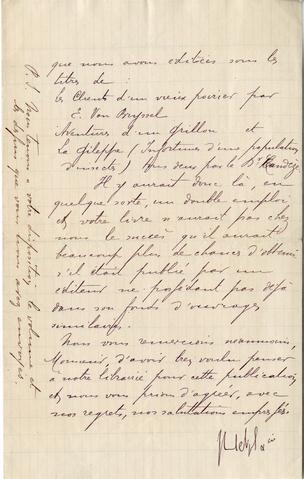 que nous avons éditées sous les
titres de :
Les Clients d'un vieux poirier par
E. Van Bruyssel
Aventures d'un Grillon et
La Gileppe (Infortunes d'une population
d'insectes) tous deux par le Dr Candèze.
Il y aurait donc là, en
quelque sorte, un double emploi
et votre livre n'aurait pas chez
nous le succès qu'il aurait
beaucoup plus de chances d'obtenir
s'il était publié par un
éditeur ne possédant pas déjà
dans son fonds d'ouvrages
similaires.
Nous vous remercions néanmoins,
Monsieur, d'avoir bien voulu penser
à notre librairie pour cette publication
et nous vous prions d'agréer, avec
nos regrets, nos salutations empressées
J Hetzel & Cie
P.S. Nous tenons à votre disposition le volume et
les dessins que vous nous avez envoyés.